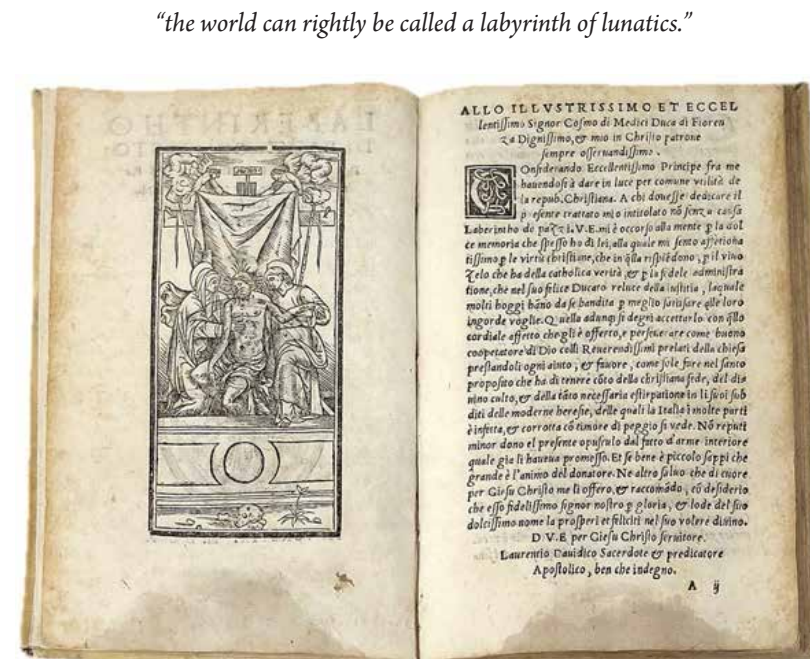 “the world can rightly be called a labyrinth of lunatics.”
ALLO ILLVSTRISSIMO ET ECCEL
lentissimo Signor Cosmo di Medici Duca di Fioren
za Dignissimo, & mio in Christo patrone
sempre osseruandissimo.
COnsiderando Eccellentissimo Principe fra me
hauendosi à dare in luce per comune vtilità de
la repub. Christiana. A chi douesse dedicare il
presente trattato mio intitolato nō senza causa
Laberintho de pazzi. V.E. mi è occorso alla mente p la dol
ce memoria che spesso ho di lei, alla quale mi sento affetiona
tissimo p le virtù christiane, che in q̃lla rispledono, p il viuo
zelo che ha della catholica verità, & p la fedele administra
tione, che nel suo felice Ducato reluce della iustitia, laquale
molti hoggi hāno da se bandita p meglio satisfare q̃lle loro
ingorde voglie. Quella adunq; si degni accettarlo con q̃llo
cordiale affetto che gli è offerto, e perseuerare come buono
coopetatore di Dio colli Reuerendissimi prelati della chiesa
prestandoli ogni aiuto, & fauore, come sole fare nel santo
proposito che ha di tenere cōto della christiana fede, del diu
uino culto, & della tāto necessaria estirpatione in li suoi sub
diti delle moderne heresie, delle quali la Italia ī molte parti
è infetta, & corrotta cō timore di peggio si vede. Nō reputi
minor dono el presente opusculo dal fatto d'arme interiore
quale gia li haueua promesso. Et se bene è piccolo sappi che
grande è l'animo del donatore. Ne altro saluo che di cuore
per Giesu Christo me li offero, & raccomādo, cō desiderio
che esso fidelissimo signor nostro p gloria, & lode del suo
dolcissimo nome la prosperi et feliciti nel suo volere diuino.
D.V.E per Giesu Christo seruitore.
Laurentio Dauidico Sacerdote & predicatore
Apostolico, ben che indegno.
A ij